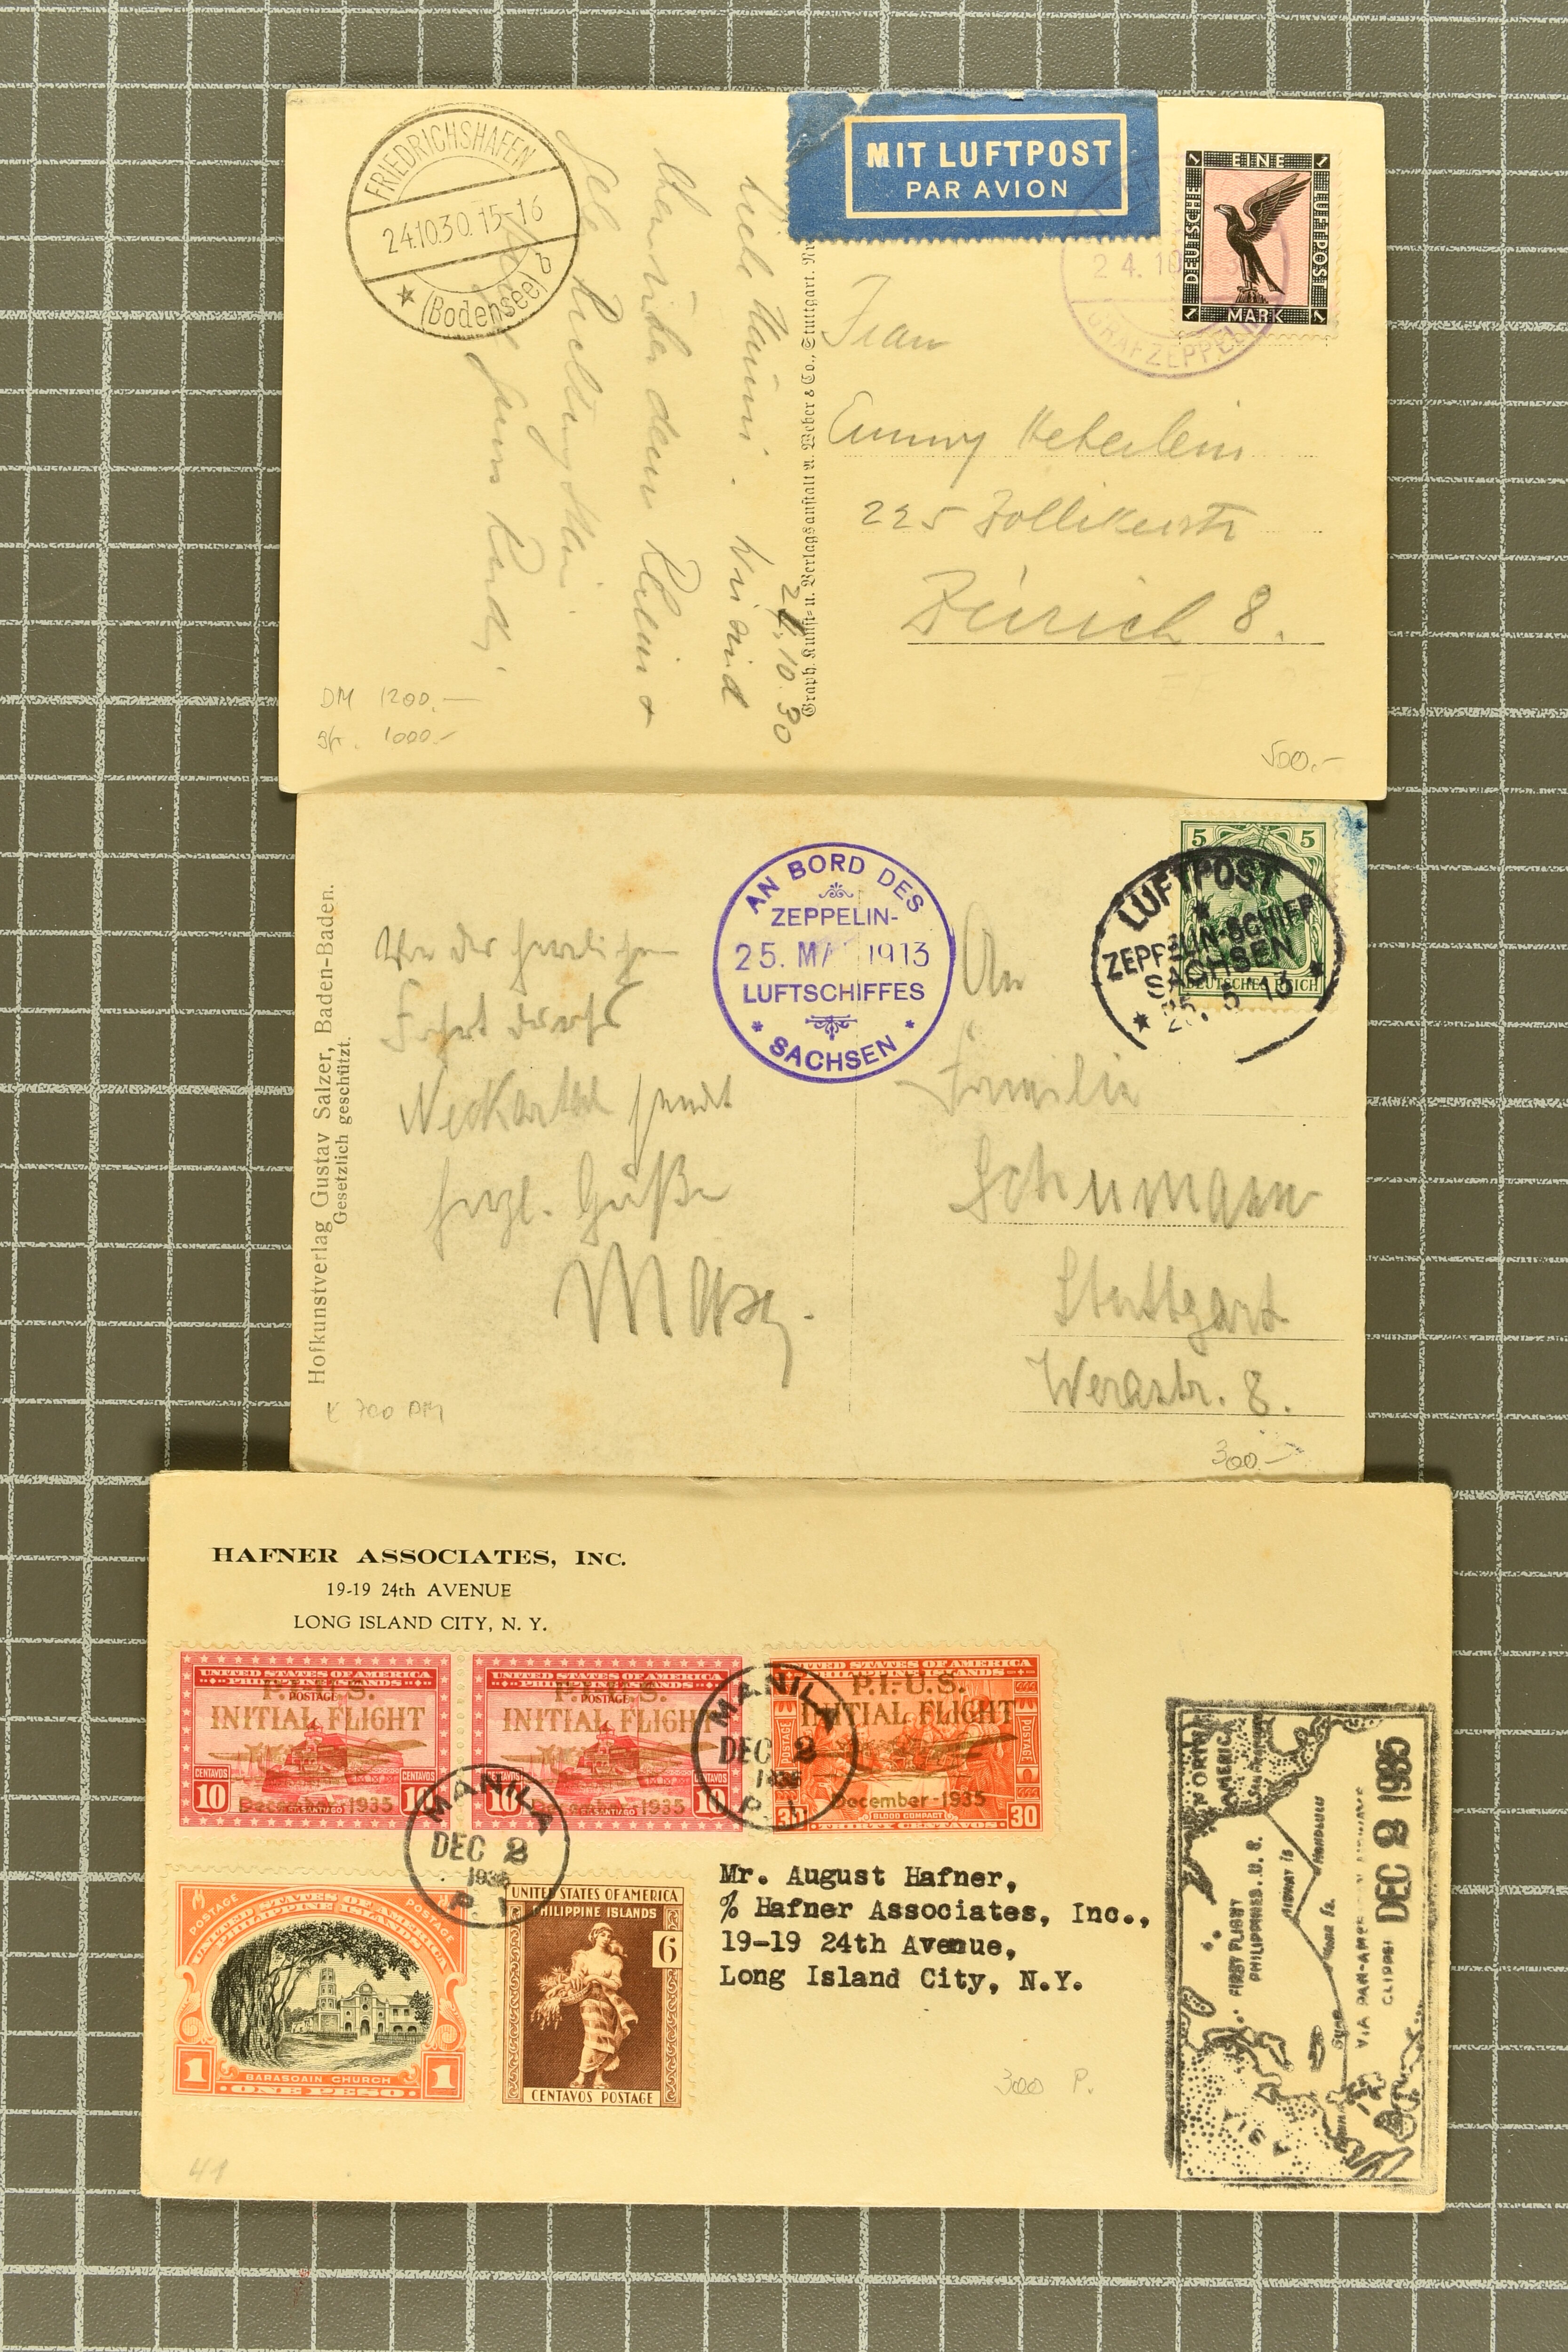 FRIEDRICHSHAFEN
24.10.30.15-16
b
(Bodensee)
MIT LUFTPOST
PAR AVION
EINE
DEUTSCHE
LUFTPOST
1 MARK 1
24.10
GRAF ZEPPELIN
24.10.30
wir sind
über dem Rhein
Graph. Kunst- u. Verlagsanstalt A. Weber & Co., Stuttgart.
Frau
Emmy Heberlein
225 Zollikerstr
Zürich 8.
DM 1200.-
sfr. 1000.-
500.-
Hofkunstverlag Gustav Salzer, Baden-Baden.
Gesetzlich geschützt.
Von der herrlichen
Fahrt durchs
Neckartal sendt
herzl. Grüße
AN BORD DES
ZEPPELIN-
25. MAI 1913
LUFTSCHIFFES
SACHSEN
5 5
DEUTSCHES REICH
LUFTPOST
ZEPPELIN-SCHIFF
SACHSEN
25. 5. 13
An
Familie
Schumann
Stuttgart
Werastr. 8.
700 DM
300.-
HAFNER ASSOCIATES, INC.
19-19 24th AVENUE
LONG ISLAND CITY, N. Y.
UNITED STATES OF AMERICA
PHILIPPINE ISLANDS
POSTAGE
P.I.-U.S.
INITIAL FLIGHT
December-1935
CENTAVOS CENTAVOS
10 10
UNITED STATES OF AMERICA
PHILIPPINE ISLANDS
POSTAGE
P.I.-U.S.
INITIAL FLIGHT
December-1935
10 10
UNITED STATES OF AMERICA
PHILIPPINE ISLANDS
P.I.-U.S.
INITIAL FLIGHT
POSTAGE POSTAGE
December-1935
30 BLOOD COMPACT 30
THIRTY CENTAVOS
MANILA
DEC 2
P. I.
MANILA
DEC 2
P. I.
POSTAGE POSTAGE
UNITED STATES OF AMERICA
PHILIPPINE ISLANDS
1 1
BARASOAIN CHURCH
ONE PESO
UNITED STATES OF AMERICA
PHILIPPINE ISLANDS
6
CENTAVOS POSTAGE
Mr. August Hafner,
% Hafner Associates, Inc.,
19-19 24th Avenue,
Long Island City, N.Y.
300 P.
41
NORTH
AMERICA
HONOLULU
MIDWAY IS
FIRST FLIGHT
PHILIPPINES-U. S.
VIA PAN-AMERICAN AIRWAYS
CLIPPER
DEC 2 1935